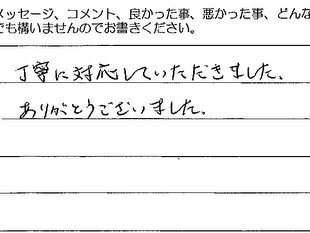 メッセージ、コメント、良かった事、悪かった事、どんな
でも構いませんのでお書きください。
丁寧に対応していただきました。
ありがとうございました。